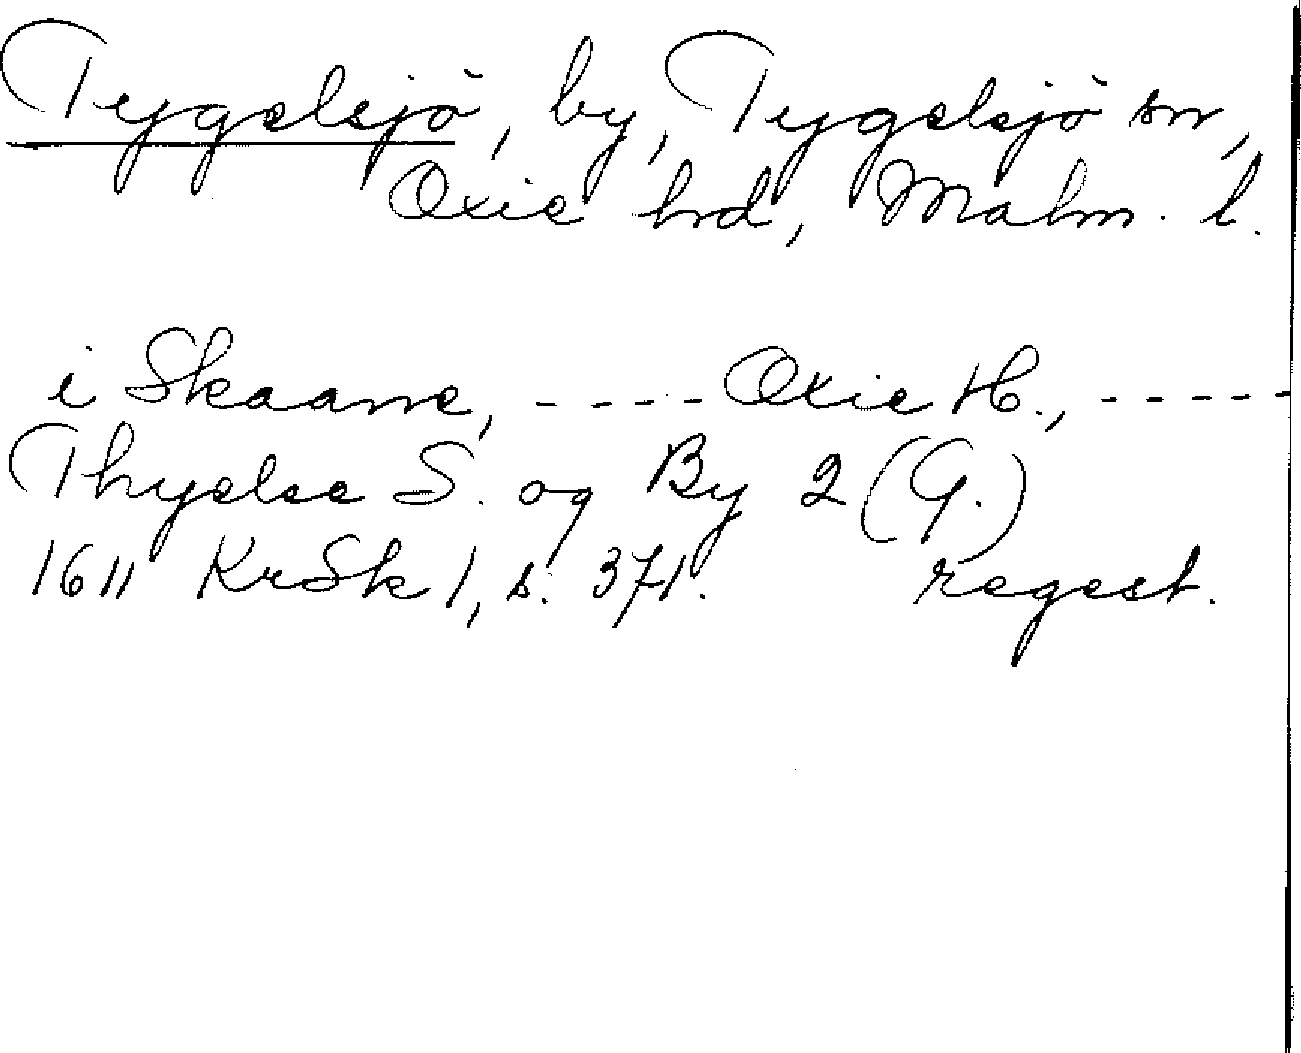 Tygelsjö, by, Tygelsjö sn,
Oxie hd, Malm. l.
i Skaane, ---- Oxie H., -----
Thyelse S. og By 2 (G.)
1611 KrSk 1, s. 371. regest.